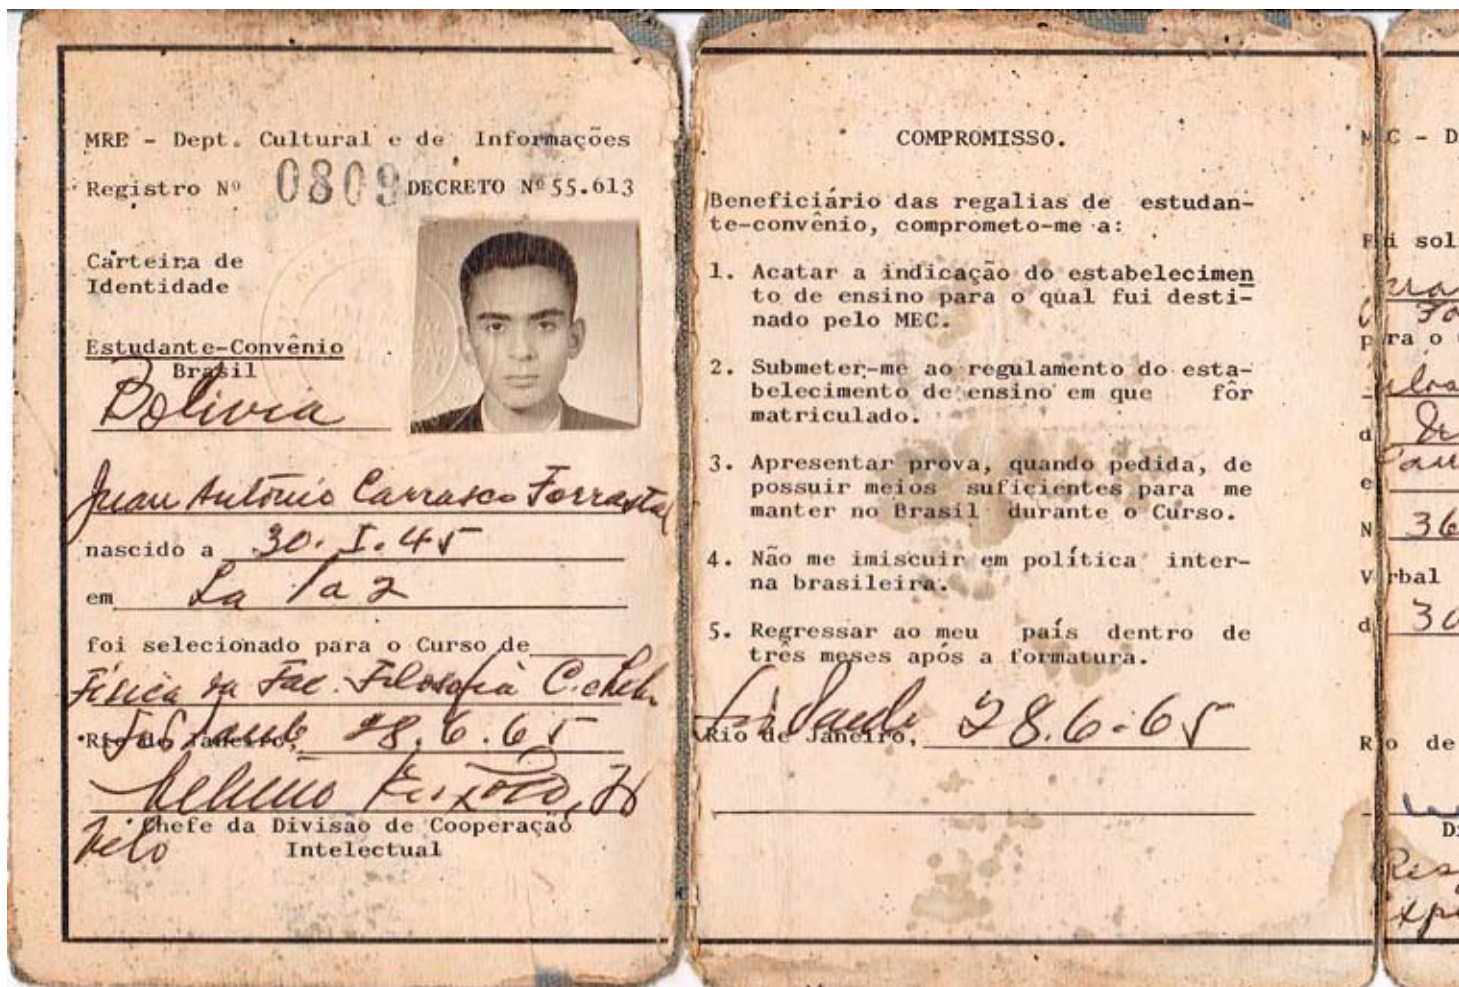 MRE - Dept. Cultural e de Informações
Registro Nº 0809 DECRETO Nº 55.613
Carteira de
Identidade
Estudante-Convênio
Brasil
Bolivia
Juan Antônio Carrasco Forrastal
nascido a 30. I. 45
em La Paz
foi selecionado para o Curso de
Física da Fac. Filosofia C.
Rio de Janeiro, 28.6.65
Chefe da Divisão de Cooperação
Intelectual
COMPROMISSO.
Beneficiário das regalias de estudan-
te-convênio, comprometo-me a:
1. Acatar a indicação do estabelecimen
to de ensino para o qual fui desti-
nado pelo MEC.
2. Submeter-me ao regulamento do esta-
belecimento de ensino em que fôr
matriculado.
3. Apresentar prova, quando pedida, de
possuir meios suficientes para me
manter no Brasil durante o Curso.
4. Não me imiscuir em política inter-
na brasileira.
5. Regressar ao meu país dentro de
três meses após a formatura.
São Paulo
Rio de Janeiro, 28.6.65
C - D
sol
ra o
36
rbal
30
de